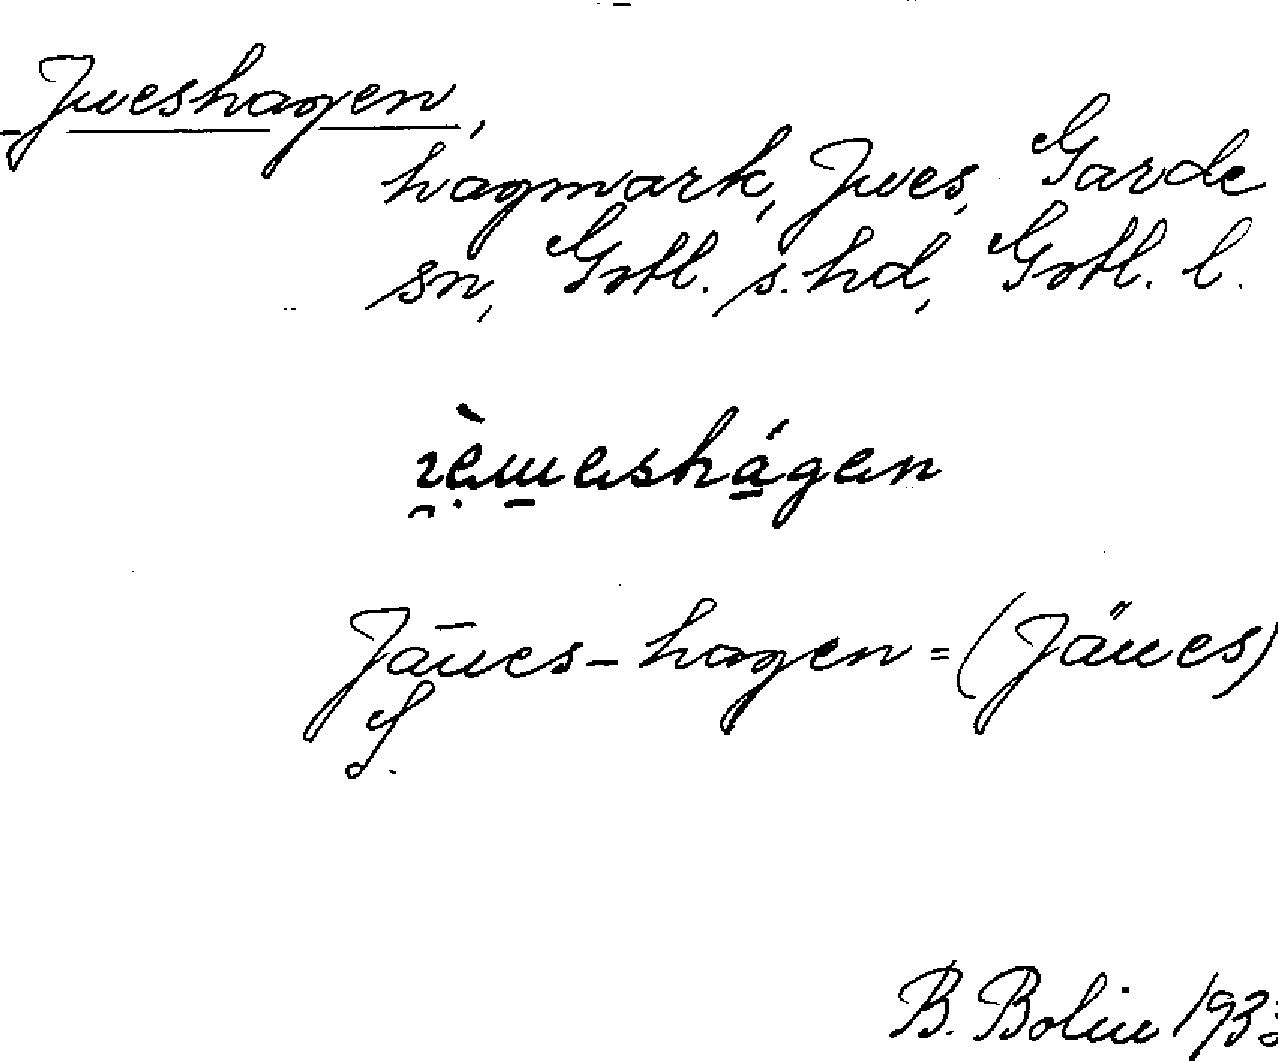 Jueshagen,
hagmark, Jues, Garde
sn, Gotl. s. hd, Gotl. l.
Jāues-hagen = (Jäues)
S.
B. Bolin 1933